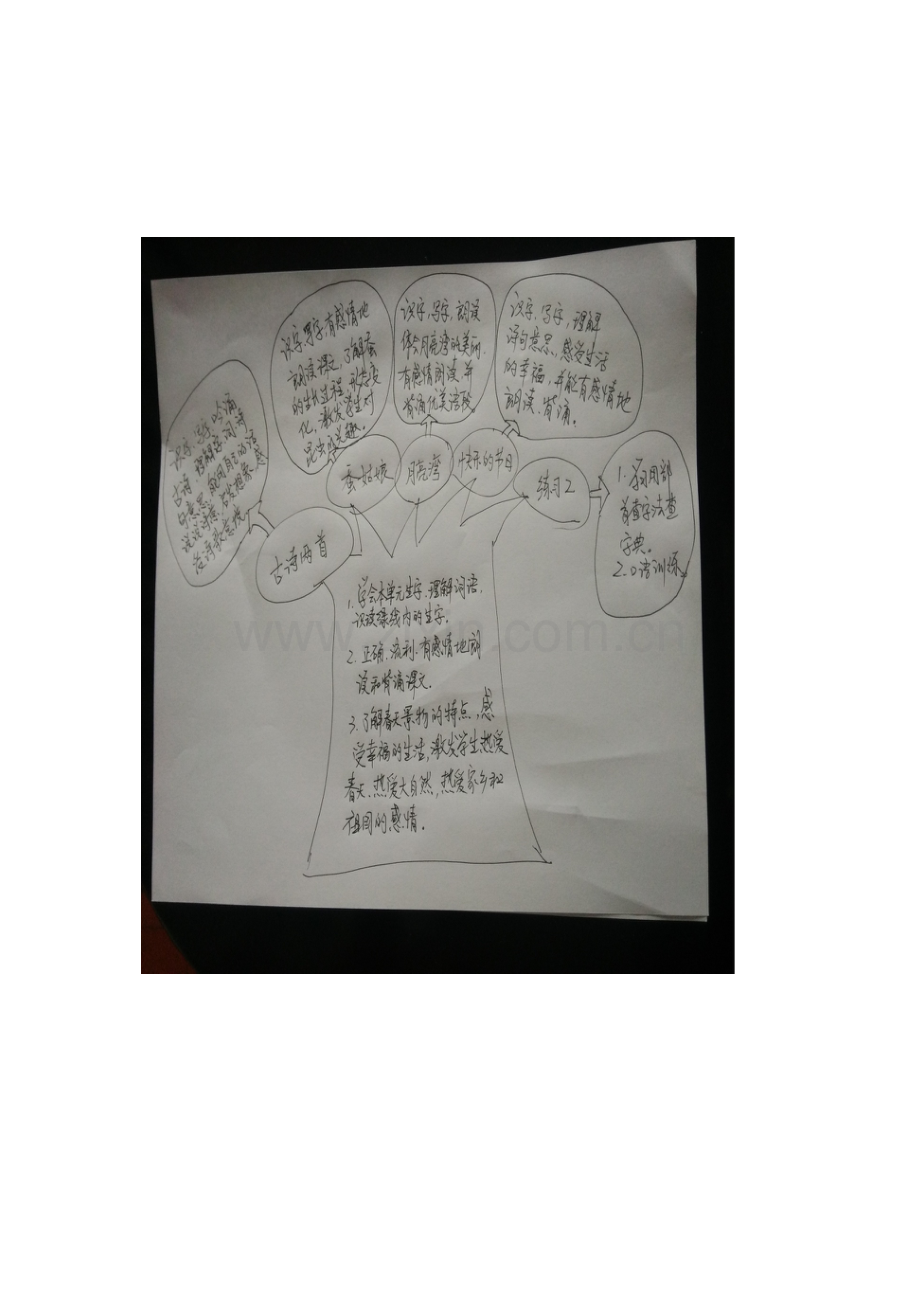 识字、写字、吟诵
古诗，理解字、词、诗
句意思，能用自己的话
说说诗意，
古诗两首
识字、写字，有感情地
朗读课文，了解蚕
的生长过程，形态变
化，激发学生对
昆虫的兴趣。
蚕姑娘
识字，写字，朗读
体会月亮湾的美丽，
有感情朗读，并
背诵优美语段
月亮湾
识字，写字，理解
诗句意思，感受生活
的幸福，并能有感情地
朗读、背诵。
快乐的节日
1. 学习用部
首查字法查
字典。
2. 口语训练
练习2
1. 学会本单元生字、理解词语，
识读绿线内的生字。
2. 正确、流利、有感情地朗
读和背诵课文。
3. 了解春天景物的特点，感
受幸福的生活，激发学生热爱
春天、热爱大自然，热爱家乡和
祖国的感情。